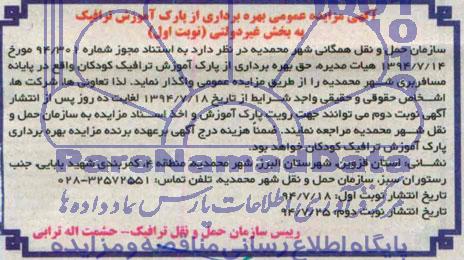 آگهی مزایده عمومی بهره برداری از پارک آموزش ترافیک
به بخش غیردولتی (نوبت اول)
سازمان حمل و نقل همگانی شهر محمدیه در نظر دارد به استناد مجوز شماره ۹۴/۳۰۶ مورخ
۱۳۹۴/۷/۱۴ هیات مدیره، حق بهره برداری از پارک آموزش ترافیک کودکان واقع در پایانه
مسافربری شهر محمدیه را از طریق مزایده عمومی واگذار نماید. لذا تعاونی ها، شرکت ها،
اشخاص حقوقی و حقیقی واجد شرایط از تاریخ ۱۳۹۴/۷/۱۸ لغایت ده روز پس از انتشار
آگهی نوبت دوم می توانند جهت رویت پارک آموزش و اخذ اسناد مزایده به سازمان حمل و
نقل شهر محمدیه مراجعه نمایند. ضمنا هزینه درج آگهی برعهده برنده مزایده بهره برداری
پارک آموزش ترافیک کودکان خواهد بود.
نشانی: استان قزوین، شهرستان البرز، شهر محمدیه، منطقه ۴، کمربندی شهید بابایی، جنب
رستوران سبز، سازمان حمل و نقل شهر محمدیه. تلفن تماس: ۳۲۵۷۲۵۵۱-۰۲۸
تاریخ انتشار نوبت اول: ۹۴/۷/۱۸
تاریخ انتشار نوبت دوم: ۹۴/۷/۲۵
رییس سازمان حمل و نقل ترافیک-- حشمت اله ترابی
پایگاه اطلاع رسانی مناقصه و مزایده